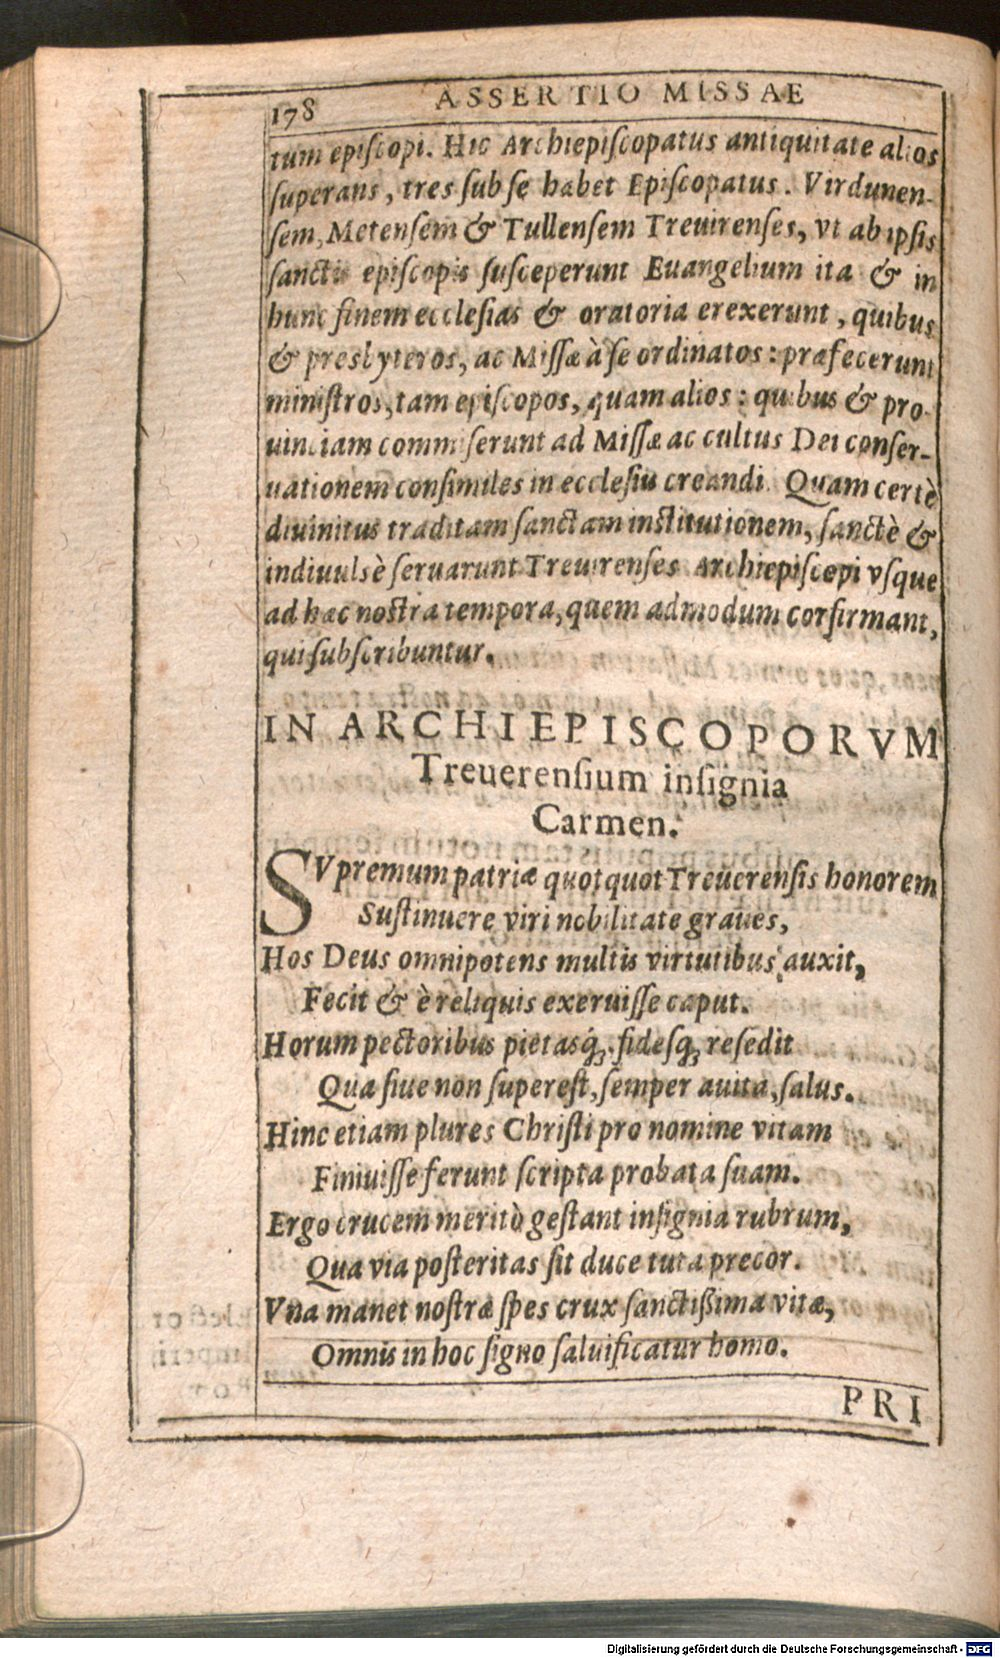 178 ASSERTIO MISSAE
tum episcopi. Hic Archiepiscopatus antiquitate alios
superans, tres sub se habet Episcopatus. Virdunen-
sem, Metensem & Tullensem Treuirenses, vt ab ipsis
sanctis episcopis susceperunt Euangelium ita & in
hunc finem ecclesias & oratoria erexerunt, quibus
& presbyteros, ac Missæ à se ordinatos: præfecerunt
ministros, tam episcopos, quam alios: quibus & pro-
uinciam commiserunt ad Missæ ac cultus Dei conser-
uationem consimiles in ecclesiis creandi. Quam certè
diuinitus traditam sanctam institutionem, sanctè &
indiuulsè seruarunt Treuirenses Archiepiscopi vsque
ad hæc nostra tempora, quem admodum corfirmant,
qui subscribuntur.
IN ARCHIEPISCOPORVM
Treuerensium insignia
Carmen.
SVpremum patriæ quotquot Treuerensis honorem
Sustinuere viri nobilitate graues,
Hos Deus omnipotens multis virtutibus auxit,
Fecit & è reliquis exeruisse caput.
Horum pectoribus pietasq́; fidesq́; resedit
Qua siue non superest, semper auita, salus.
Hinc etiam plures Christi pro nomine vitam
Finiuisse ferunt scripta probata suam.
Ergo crucem meritò gestant insignia rubrum,
Qua via posteritas sit duce tuta precor.
Vna manet nostræ spes crux sanctißima vitæ,
Omnis in hoc signo saluificatur homo.
PRI
Digitalisierung gefördert durch die Deutsche Forschungsgemeinschaft - DFG